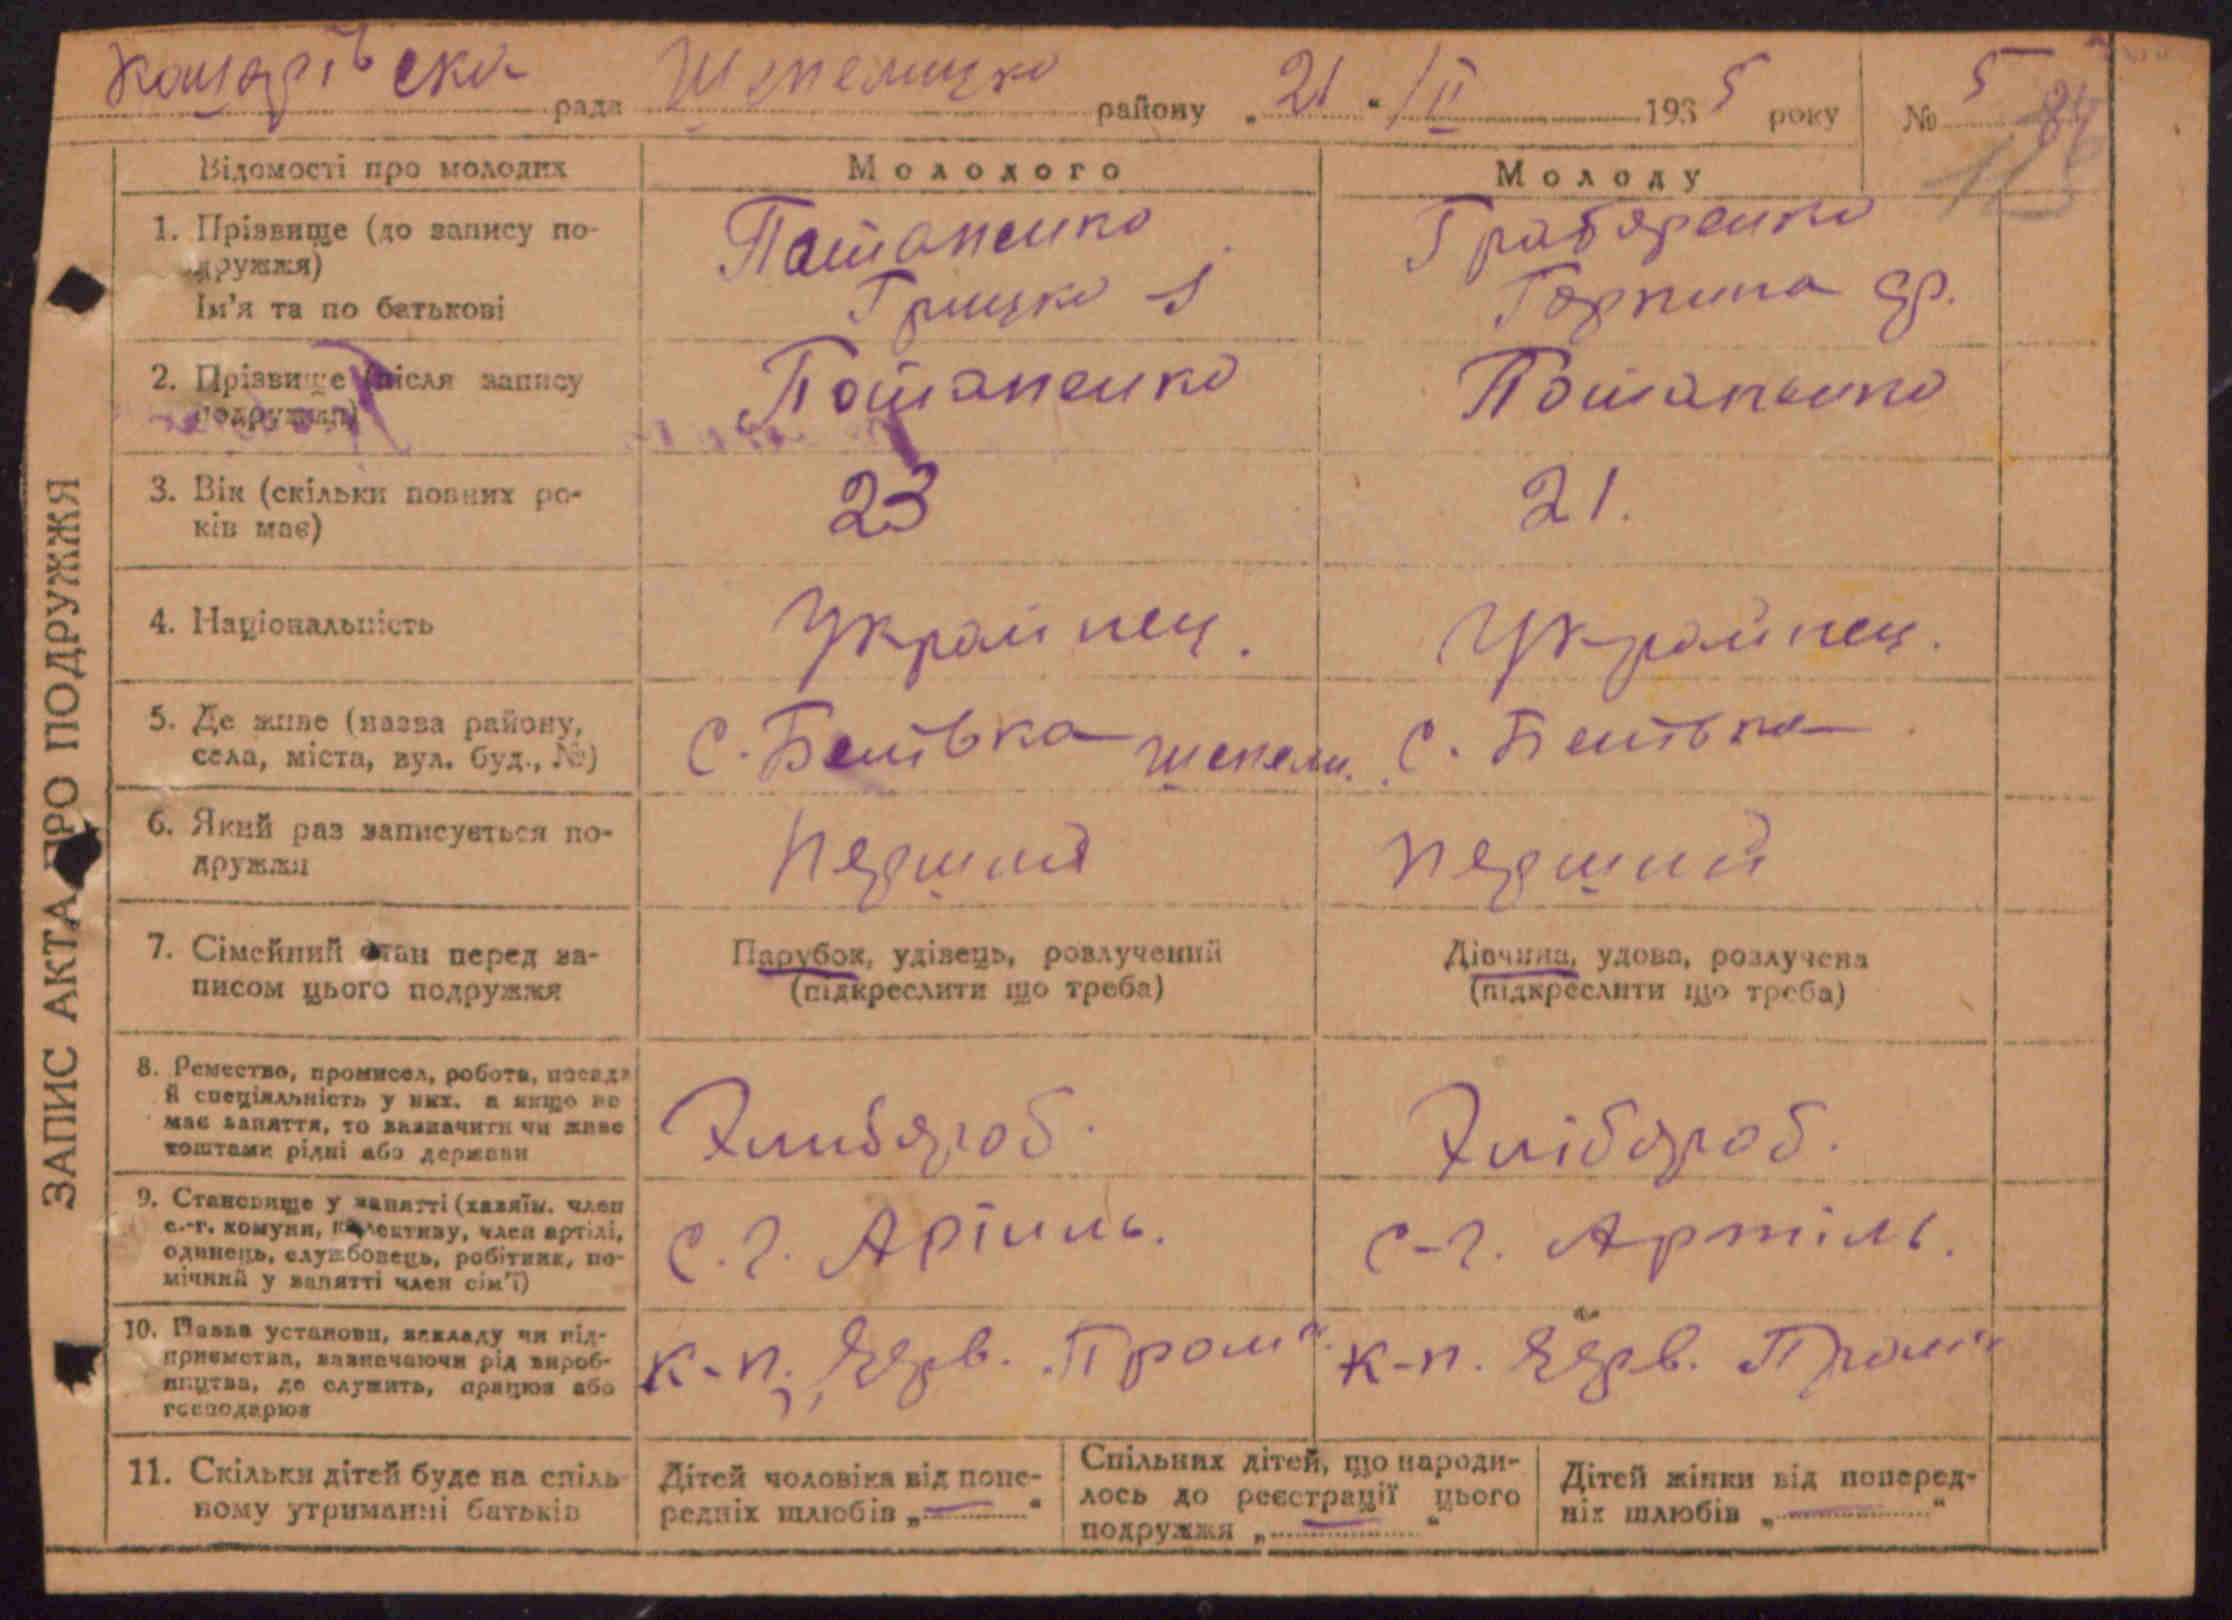 Кошарівска рада Шепелицко району „21“ /ІІ 1935 року № 5
84
Відомості про молодих Молодого Молоду
1. Прізвище (до запису по-
дружжя)
Потапенко
Грицко
Горпина
Ім'я та по батькові
2. Прізвище (після запису
подружжя)
Потапенко Потапенко
3. Вік (скільки повних ро-
ків має)
23 21.
4. Національність
Українец. Українец.
5. Де живе (назва району,
села, міста, вул. буд., №)
с. Бенівка шепели. с. Бенівка
6. Який раз записується по-
дружжя
первший
7. Сімейний стан перед за-
писом цього подружжя
Парубок, удівець, розлучений
(підкреслити що треба)
Дівчина, удова, розлучена
(підкреслити що треба)
8. Ремество, промисел, робота, посада
й спеціяльність у них. а якщо не
має заняття, то зазначити чи живе
коштами рідні або держави
Хлибороб. Хлібороб.
9. Становище у занятті (хазяїн. член
с.-г. комуни, колективу, член артілі,
одинець, службовець, робітник, по-
мічний у занятті член сім'ї)
с.г. Артиль. с-г. Артіль.
10. Назва установи, закладу чи під-
приємства, зазначаючи рід вироб-
ництва, де служить, працює або
господарює
к-п. „Черв. Пром“ к-п. Черв. Пром“
11. Скільки дітей буде на спіль
ному утриманні батьків
Дітей чоловіка від попе-
редніх шлюбів „—“
Спільних дітей, що народи-
лось до реєстрації цього
подружжя „—“
Дітей жінки від поперед-
ніх шлюбів „—“
ЗАПИС АКТА ПРО ПОДРУЖЖЯ